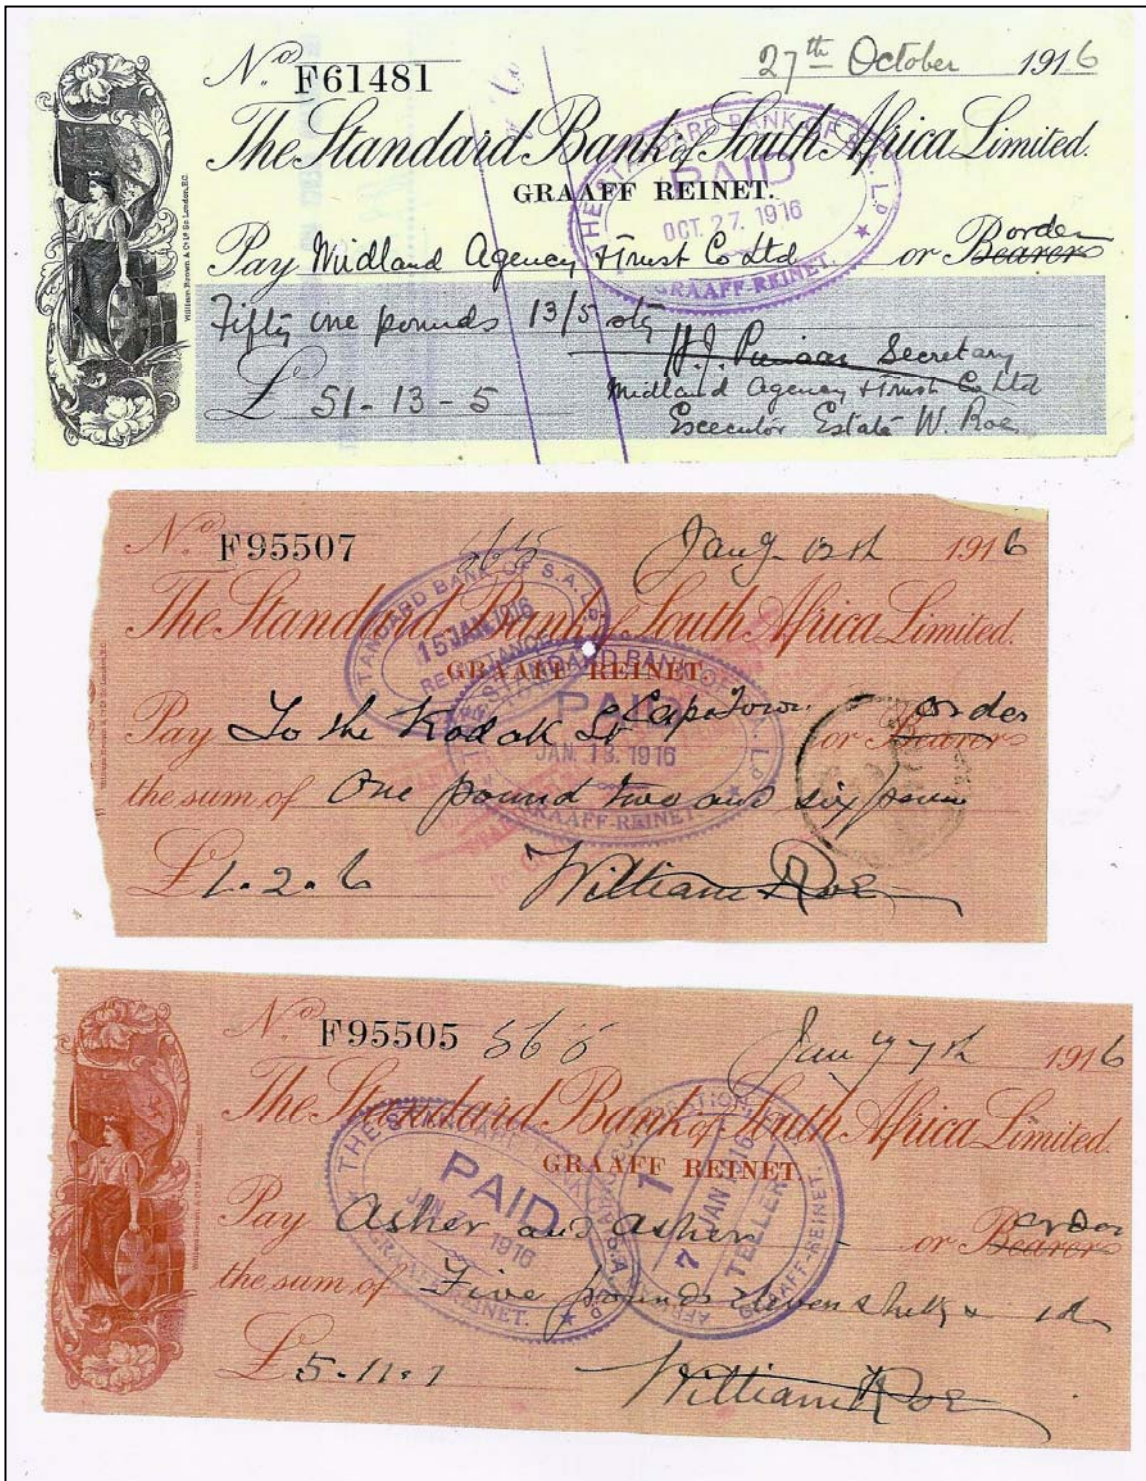 No. F61481
27th October 1916
The Standard Bank of South Africa Limited.
GRAAFF REINET.
THE STANDARD BANK OF S.A. LD
PAID
OCT. 27. 1916
GRAAFF-REINET.
Pay Midland Agency & Trust Co Ltd or Bearer order
Fifty one pounds 13/5 stg
£ 51-13-5
Secretary
Midland Agency & Trust Co Ltd
Executor Estate W. Roe
William Brown & Co Ld Sc London, E.C.
No. F95507
Jany 12th 1916
The Standard Bank of South Africa Limited.
GRAAFF REINET.
STANDARD BANK OF S.A. LD
15 JAN 1916
STANDARD BANK OF S.A. LD
PAID
JAN 13. 1916
GRAAFF-REINET.
Pay To the Kodak Ld Cape Town or Bearer order
the sum of One pound two and six pence
£1.2.6
William Roe
No. F95505 565
Jany 7th 1916
The Standard Bank of South Africa Limited.
GRAAFF REINET.
THE STANDARD BANK OF S.A. LD
PAID
JAN 7. 1916
GRAAFF-REINET.
1
7 JAN 1916
TELLER
GRAAFF-REINET.
Pay Asher and Asher or Bearer order
the sum of Five pounds eleven shillgs & 1d
£5.11.1
William Roe